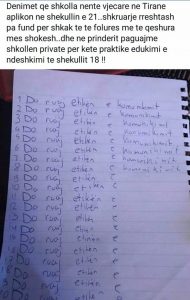 Denimet qe shkolla nente vjecare ne Tirane
aplikon ne shekullin e 21..shkruarje rreshtash
pa fund per shkak te te folures me te qeshura
mes shokesh..dhe ne prinderit paguajme
shkollen private per kete praktike edukimi e
ndeshkimi te shekullit 18 !!
Do ruaj etiken e komunikimit
Do ruaj etiken e komunikimit
Do ruaj etiken e komunikimit
Do ruaj etiken e komunikimit
Do ruaj etiken e komunikimit
Do ruaj etiken e komunikimit
Do ruaj etiken e komunikimit
Do ruaj etiken e komunikimit
Do ruaj etiken e komunikimit
Do ruaj etiken e
Do ruaj etiken e
Do ruaj etiken e
Do ruaj etiken e
Do ruaj etiken e
Do ruaj etiken e
Do ruaj etiken e
Do ruaj etiken e
Do ruaj etiken e
Do ruaj etiken e